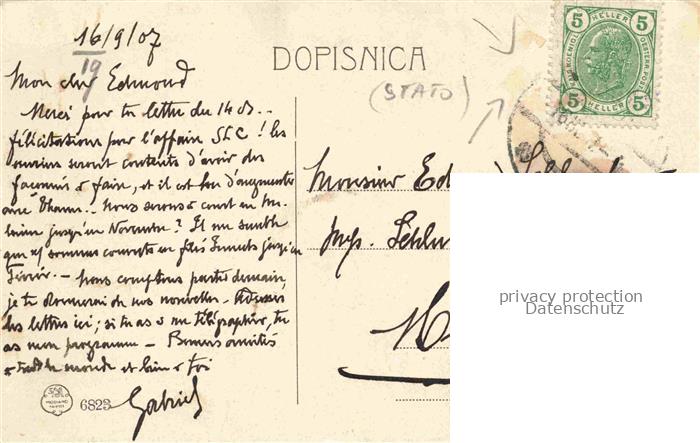 16/9/07
19
DOPISNICA
(STATO)
Mon cher Edmond
Merci pour ta lettre du 14 ct.
félicitations pour l'affaire SLC ! les
ouvriers seront contents d'avoir des
à faire, et il est bon d'augmenter
avec nous serons à court en
laine jusqu'en Novembre ? Il me semble
que ns sommes couverts en filés jusqu'en
Février. — Nous comptons partir demain,
je te donnerai de nos nouvelles. Adresse
les lettres ici ; si tu as à me télégraphier, tu
as mon programme — Bonnes amitiés
à tout le monde et bien à toi
Gabriel
6823
Monsieur Ed
Schlu
5 HELLER 5
5 HELLER 5
privacy protection
Datenschutz